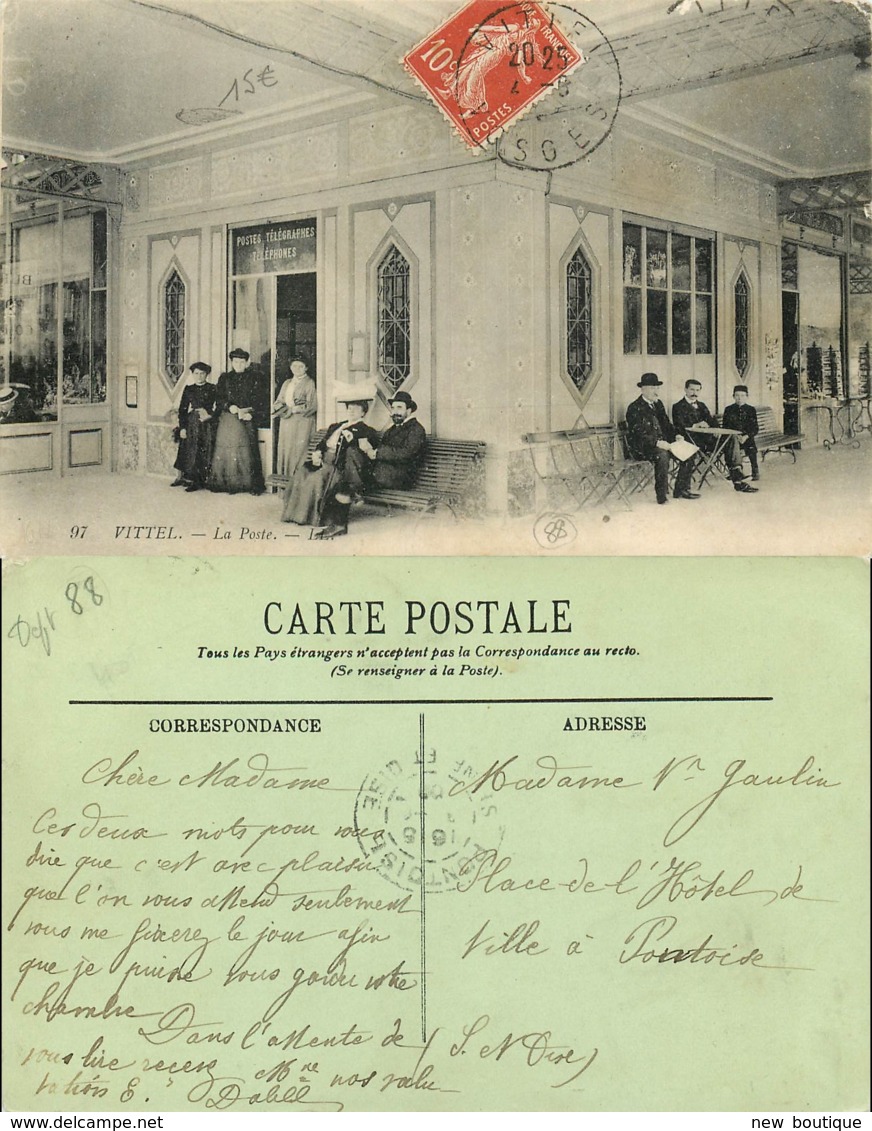 15€
10c
POSTES
VITTEL
20 25
VOSGES
POSTES TÉLÉGRAPHES
TÉLÉPHONES
97 VITTEL. — La Poste. — LL.
88
Dept 88
CARTE POSTALE
Tous les Pays étrangers n'acceptent pas la Correspondance au recto.
(Se renseigner à la Poste).
CORRESPONDANCE
ADRESSE
PONTOISE
SEINE ET OISE
Chère Madame
Ces deux mots pour vous
dire que c'est avec plaisir
que l'on vous attend seulement
vous me fixerez le jour afin
que je puisse vous garder votre
chambre
Dans l'attente de
vous lire recevez Mme nos salu
tations E.
Madame Vve Gaulin
Place de l'Hôtel de
Ville à Pontoise
(S. et Oise)
new boutique